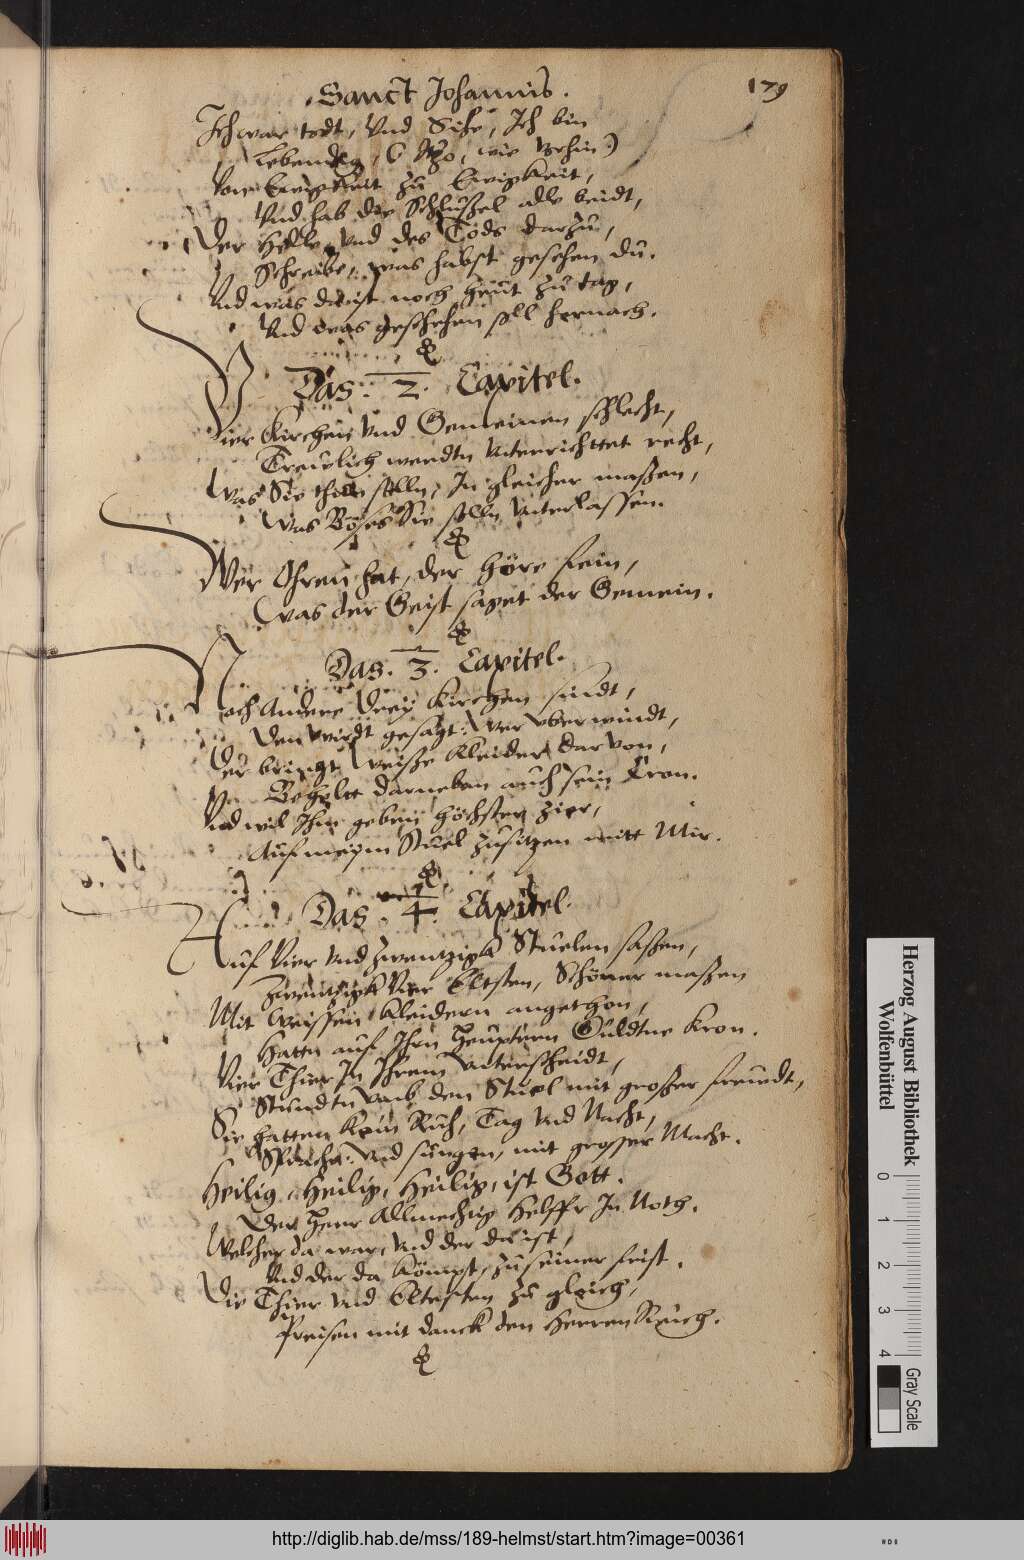 Sanct Johannis.
179
Ich war todt, Vnd Sihe, Ich bin
Lebendig, (Itzo, wie Vorhin)
Von Ewigkeit zu Ewigkeit,
Vnd hab die Schlüßel alle beidt,
Der Helle Vnd des Tods darzu,
Schreibe, was habst gesehen du.
Vnd was da ist noch heut zu tag,
Vnd was geschehen soll hernach.
Das: 2. Capitel.
Vier Kirchen Vnd Gemeinen schlecht,
Treulich werdtn Vnterrichttet recht,
Was Sie thun solln, In gleicher maßen,
Was Böses Sie solln Vnterlassen.
Wer Ohren hat, der höre fein,
Was der Geist saget der Gemein.
Das. 3. Capitel.
Noch Andere drey Kirchen sindt,
Den wirdt gesagt: Wer vberwindt,
Der bringt Weiße Kleider darvon,
Behelt darneben auch sein Cron.
Vnd wil Ihm geben höchster zier,
Auf meym Stuel zusitzen mitt Mir.
Das. 4. Capitel.
Auf Vier Vnd zwentzigk Stuelen saßen,
Zwentzigk Vier Eltsten, Schöner maßen
Mit Weissen Kleidern angethon,
Hattn auf Ihrn Heuptern Güldtne Kron.
Vier Thier In Ihrem Vnterscheidt,
Stundtn Vmb den Stuel mit großer freudt,
Sie hatten kein Ruh, Tag Vnd Nacht,
Vnd sungen, mit grosser Macht.
Heilig, Heilig, Heilig, ist Gott.
Der Herr Allmechtig Helffr In Noth.
Welcher da war, Vnd der da ist,
Vnd der da kömpt, zu seiner frist.
Die Thier Vnd Eltesten zu gleich,
Preisen mit danck den Herren
Herzog August Bibliothek
Wolfenbüttel
0
1
2
3
4
Gray Scale
http://diglib.hab.de/mss/189-helmst/start.htm?image=00361